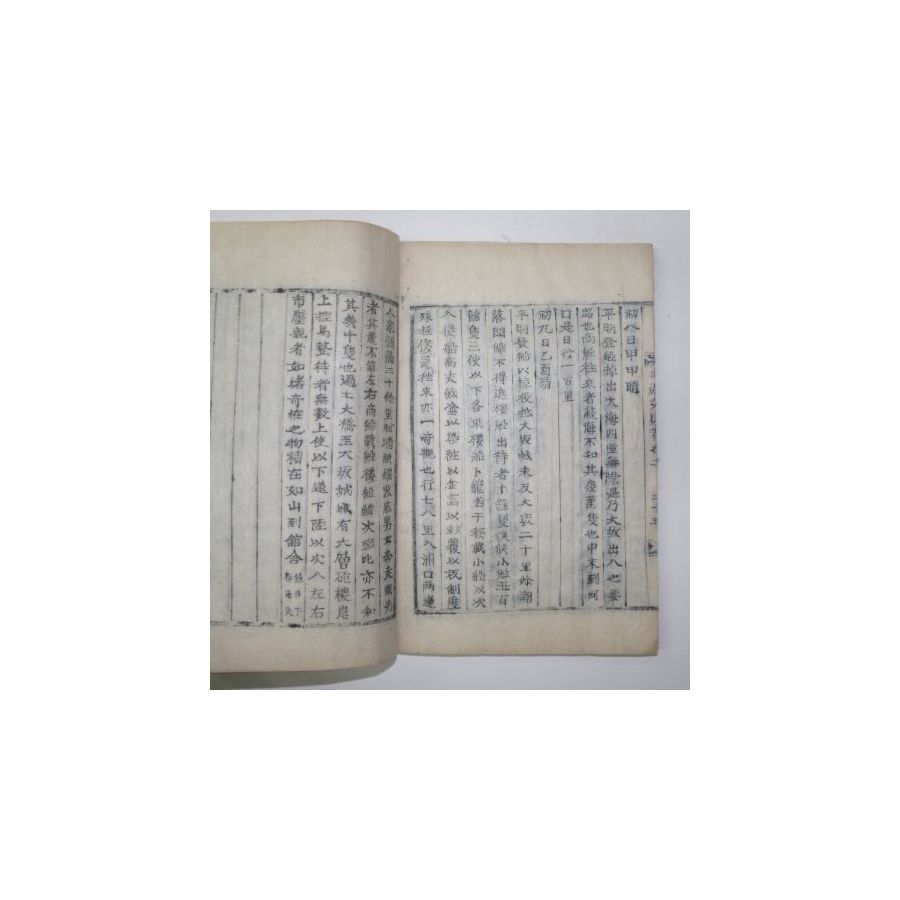 初八日甲申晴
平明發船掉出大海四望無際是乃大坂出入之要
路也商船往來者蔽海不知其幾萬隻也申末到河
口是日行一百里
初九日乙酉晴
平明發船以棹役越大坂城未及大坂二十里餘潮
落閣船不得進樓船出待者十餘隻候小船五百
餘隻三使以下各乘樓船卜䭾若干移載小船以次
入樓船高大餙以染䊋以金窓以彩覆以板制度
殊極俊麗往來亦一奇觀也行七八里入浦口兩邊
人家彌滿二十餘里粉墻照耀男女奔走觀光
者其麗不億左右商船戰船樓船鱗次櫛比亦不知
其幾千隻也過土大橋至大坂城城有六層砲樓岸
上控馬整待者無數上使以下遂下陸以次入左右
市廛觀者如堵奇怪之物積在如山到館舍